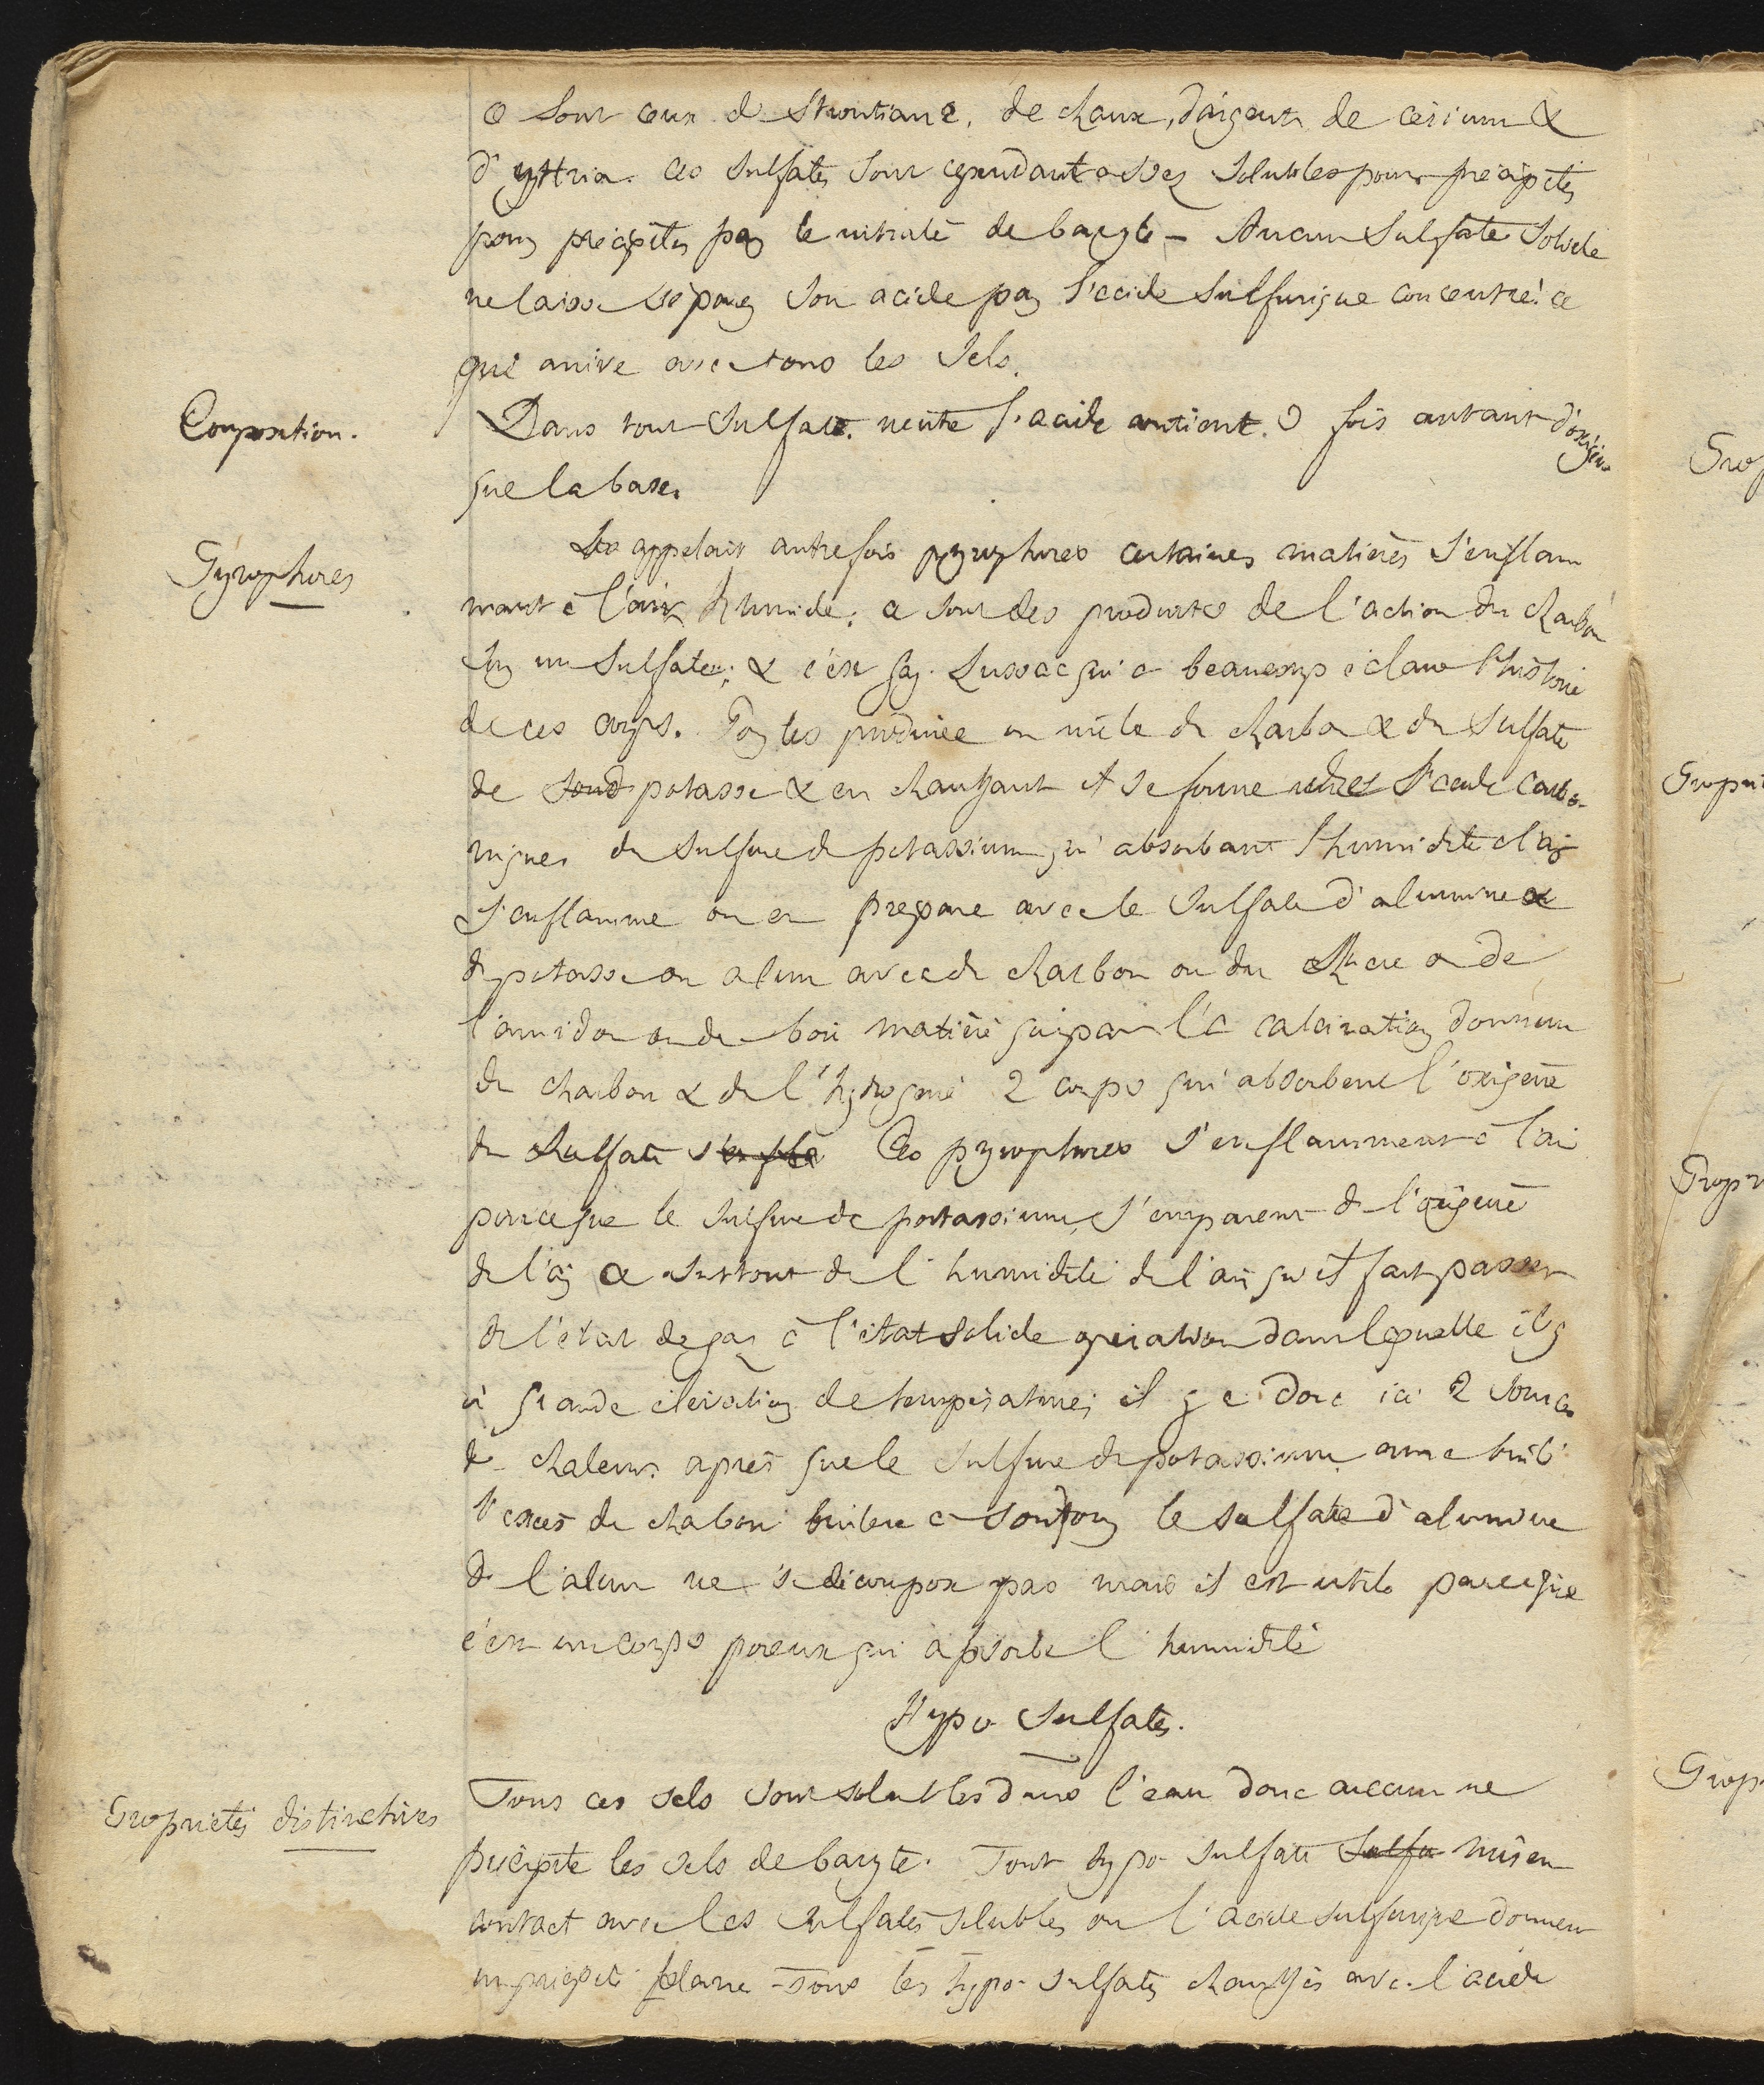 ce sont ceux de Strontiane, de chaux, d'argent, de cérium &
d'yttria. ces sulfates sont cependant assez solubles pour précipiter
pour précipiter par le nitrate de baryte – Aucun Sulfate solide
ne laisse séparer son acide par l'acide sulfurique concentré. ce
qui arrive avec tous les sels.
Composition.
Dans tout sulfate neutre l'acide contient 3 fois autant d'oxigène
que la base.
Pyrophores
On appelait autrefois pyrophores certaines matières s'enflam
mant à l'air humide; ce sont des produits de l'action du charbon
sur un sulfate; & c'est Gay-Lussac qui a beaucoup éclairé l'histoire
de ces corps. Pour les produire on mêle du charbon & du sulfate
de potasse & en chauffant il se forme l'acide carbo-
nique du sulfure de potassium qui absorbant l'humidité de l'air
s'enflamme on en prepare avec le sulfate d'alumine &
de potasse ou alun avec du charbon ou du sucre ou de
l'amidon ou du bois matière qui par la calcination donnent
du charbon & de l'hydrogène 2 corps qui absorbent l'oxigène
du sulfate Ces pyrophores s'enflamment à l'air
parceque le sulfure de potassium s'emparent de l'oxigène
de l'air & surtout de l'humidité de l'air qu'il fait passer
de l'état de gaz à l'état solide opération dans laquelle il y
a grande élévation de température; il y a donc ici 2 sources
de chaleur après que le sulfure de potassium aura brulé
l'excès de charbon brulera à son tour le sulfate d'alumine
de l'alun ne se décompose pas mais il est utile parceque
c'est un corps poreux qui absorbe l'humidité
Hypo Sulfates.
Propriétés distinctives
Tous ces sels sont solubles dans l'eau donc aucun ne
précipite les sels de baryte. Tout hypo sulfate Sulfa mis en
contact avec les sulfates solubles ou l'acide sulfurique donnent
un précipité blanc – Tous les hypo-sulfates chauffés avec l'acide
Prop